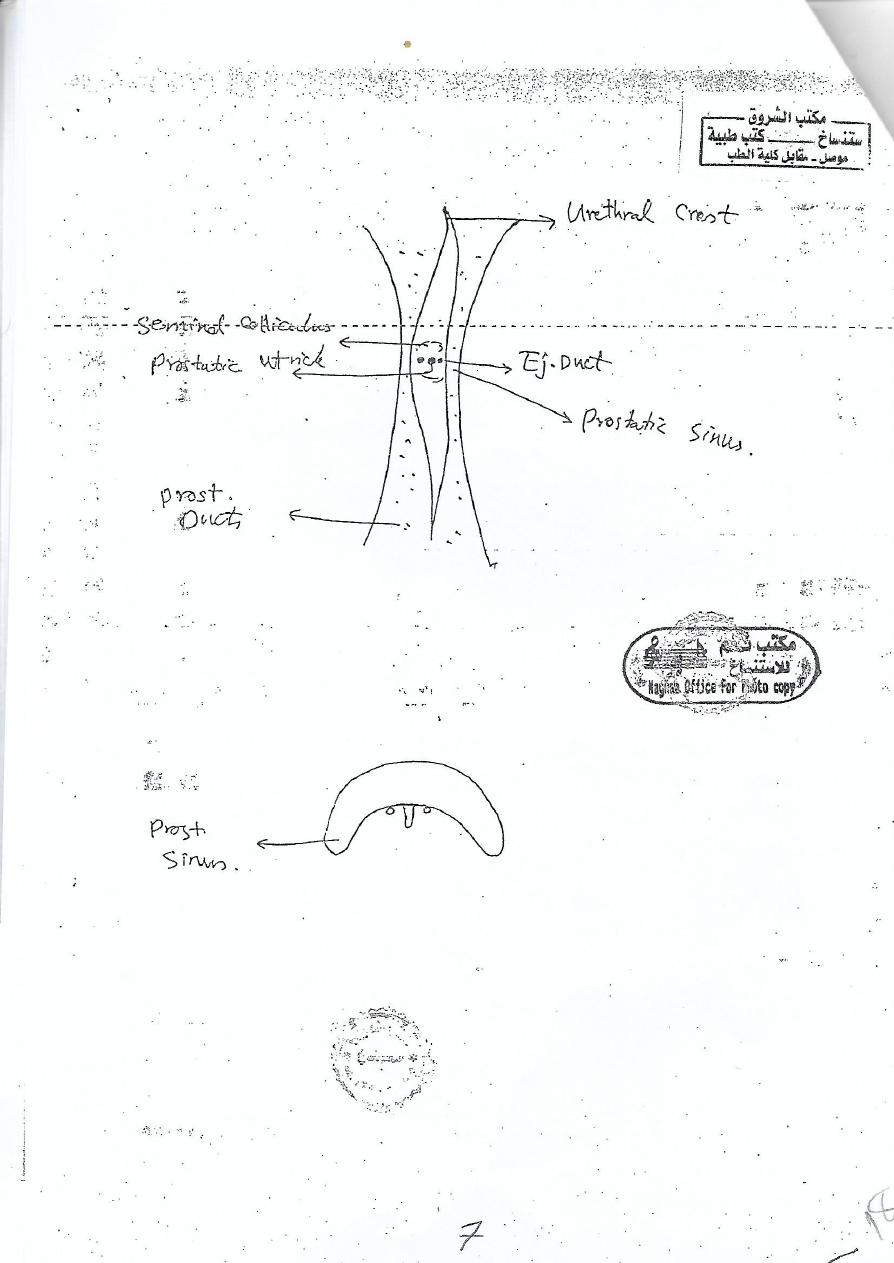 مكتب الشروق
ستنساخ كتب طبية
موصل - مقابل كلية الطب
Urethral Crest
Seminal Colliculus
Prostatic utrick
Ej. Duct
Prostatic Sinus.
Prost.
Ducts
مكتب
للاستنساخ
Office for Photo copy
Prost
Sinus.
7